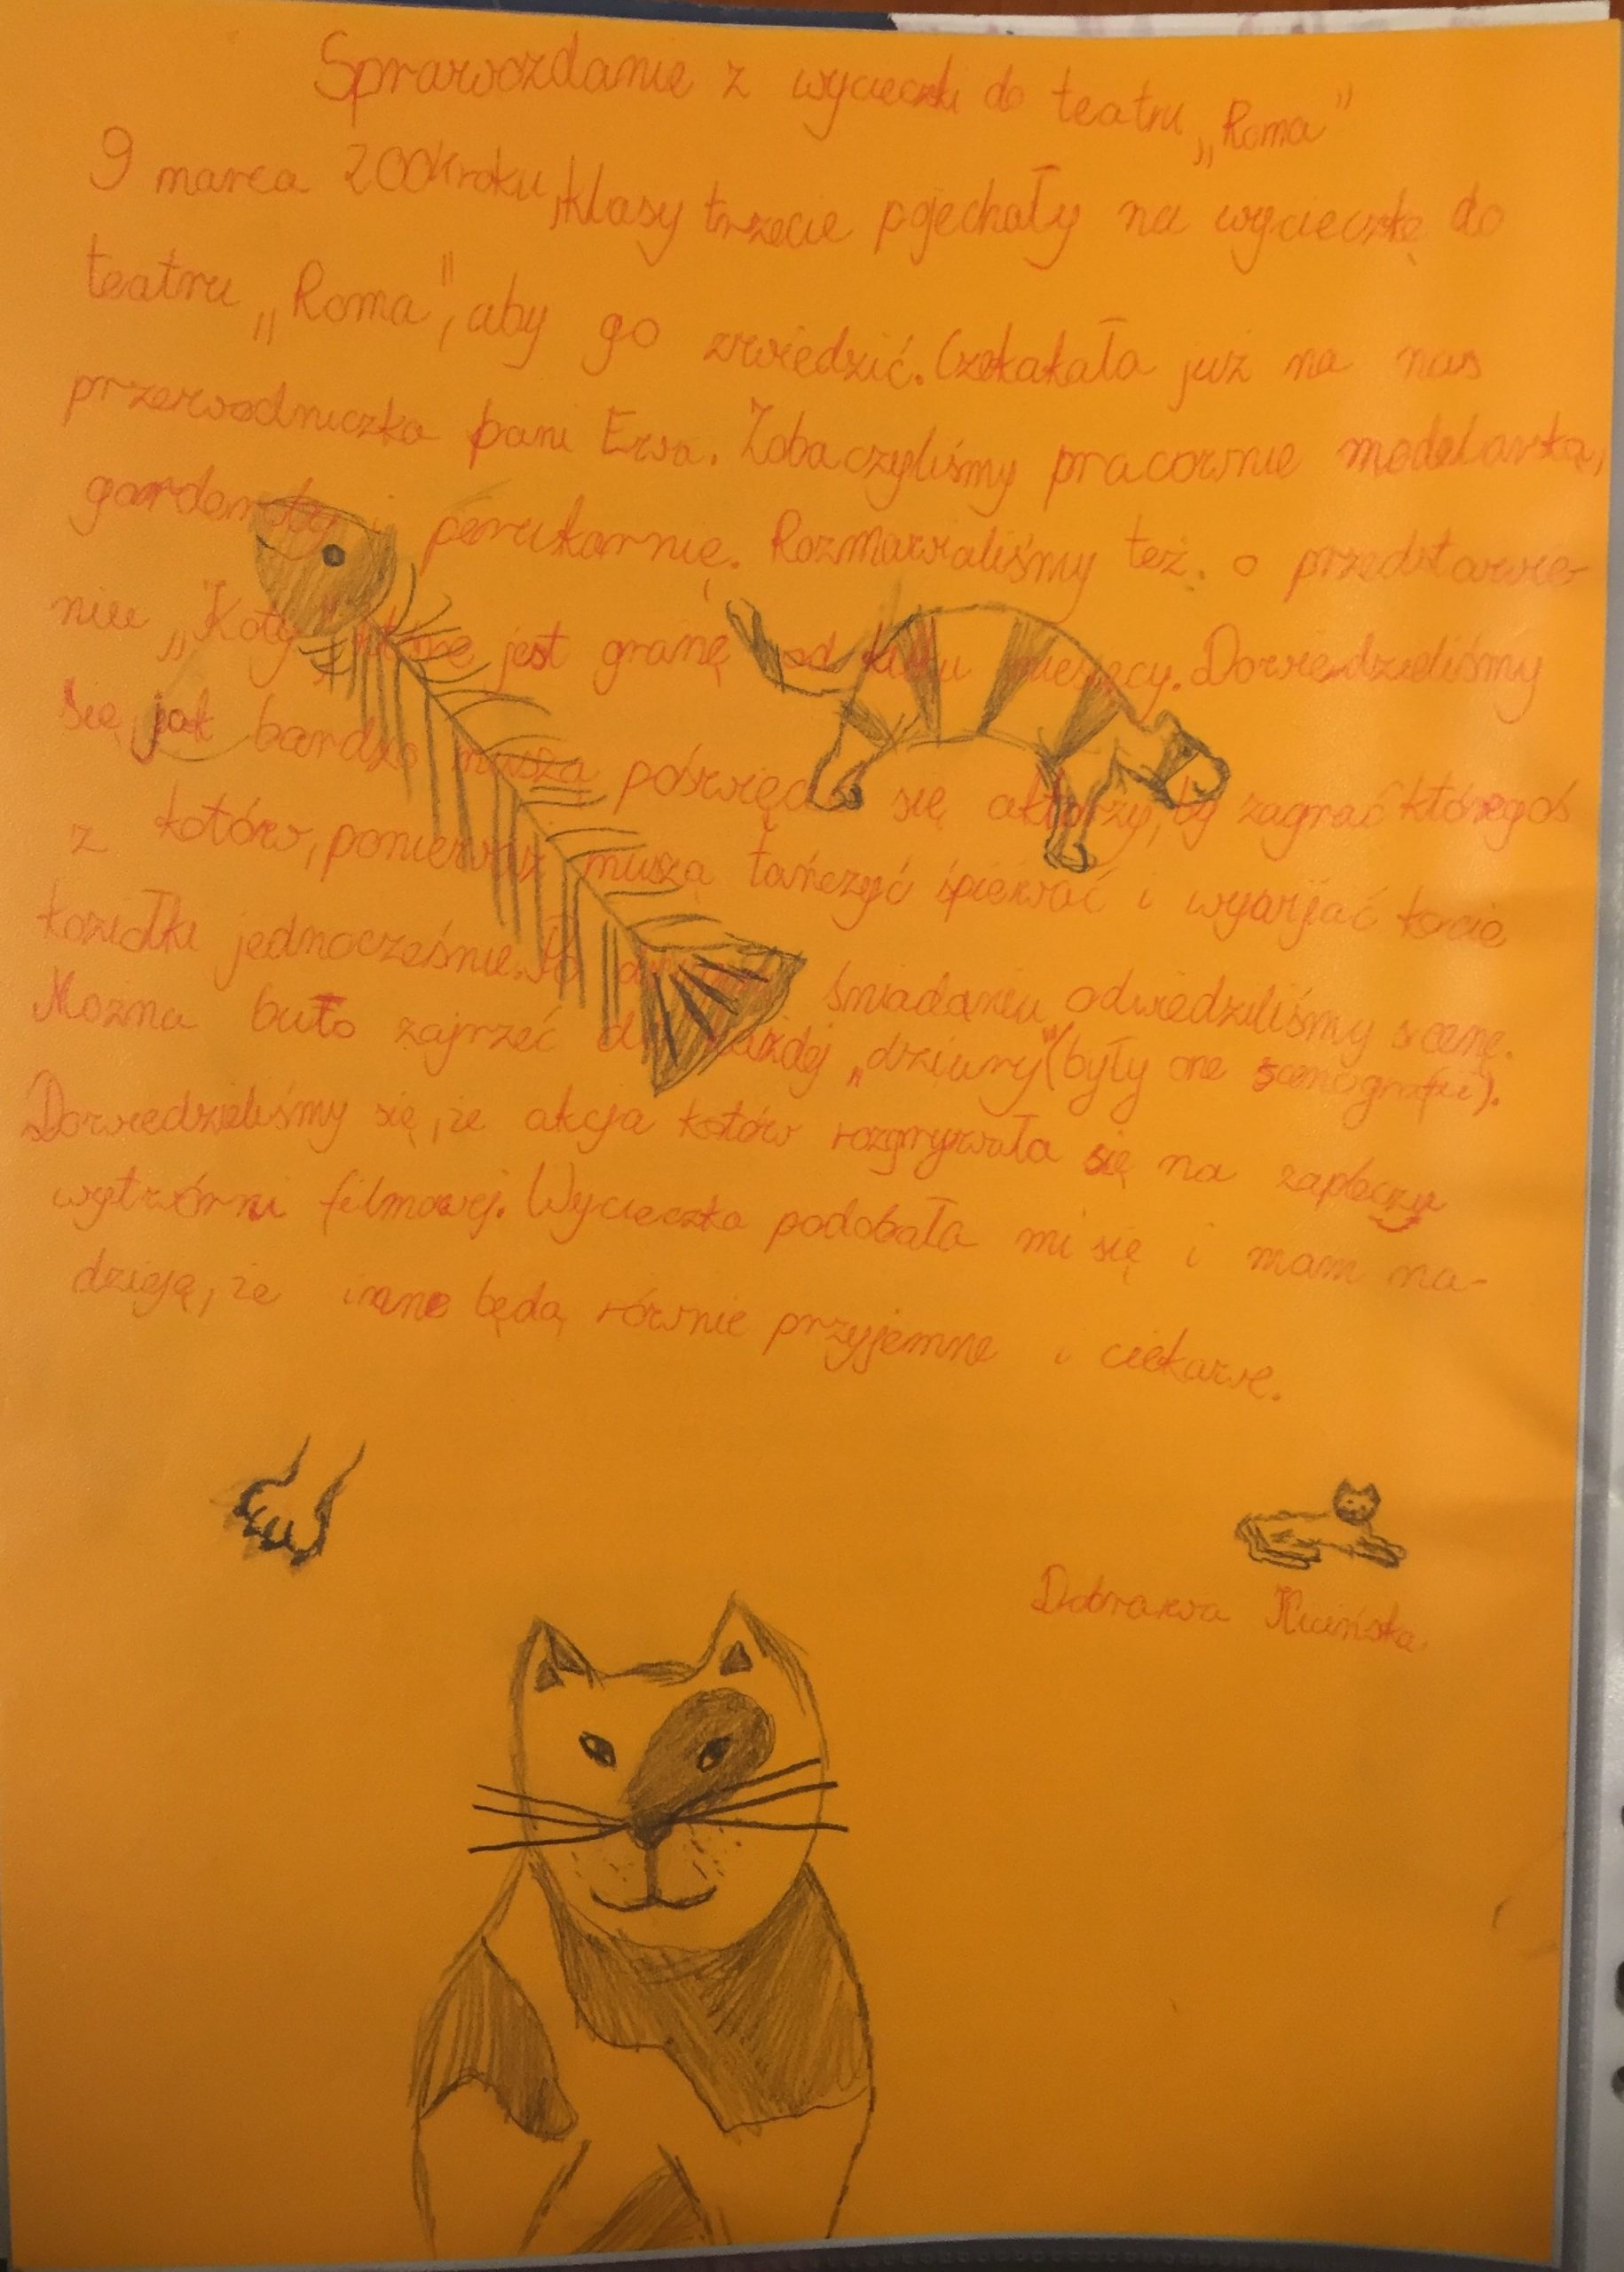 Sprawozdanie z wycieczki do teatru „Roma"
9 marca 2004 roku, klasy trzecie pojechały na wycieczkę do
teatru „Roma", aby go zwiedzić. Czekakała już na nas
przewodniczka pani Ewa. Zobaczyliśmy pracownie modelarską,
garderobę i perukarnię. Rozmawialiśmy też o przedstawie-
niu „Koty", które jest granę od kilku miesięcy. Dowiedzieliśmy
się, jak bardzo muszą poświęcać się aktorzy, by zagrać któregoś
z kotów, ponieważ muszą tańczyć śpiewać i wywijać kocie
koziołki jednocześnie. Po śniadaniu odwiedziliśmy scenę.
Można buło zajrzeć do każdej „dziury" (były one scenografii).
Dowiedzieliśmy się, że akcja kotów rozgrywała się na zapleczu
wytwórni filmowej. Wycieczka podobała mi się i mam na-
dzieję, że inne będą równie przyjemne i ciekawe.
Dobrawa Kicińska.